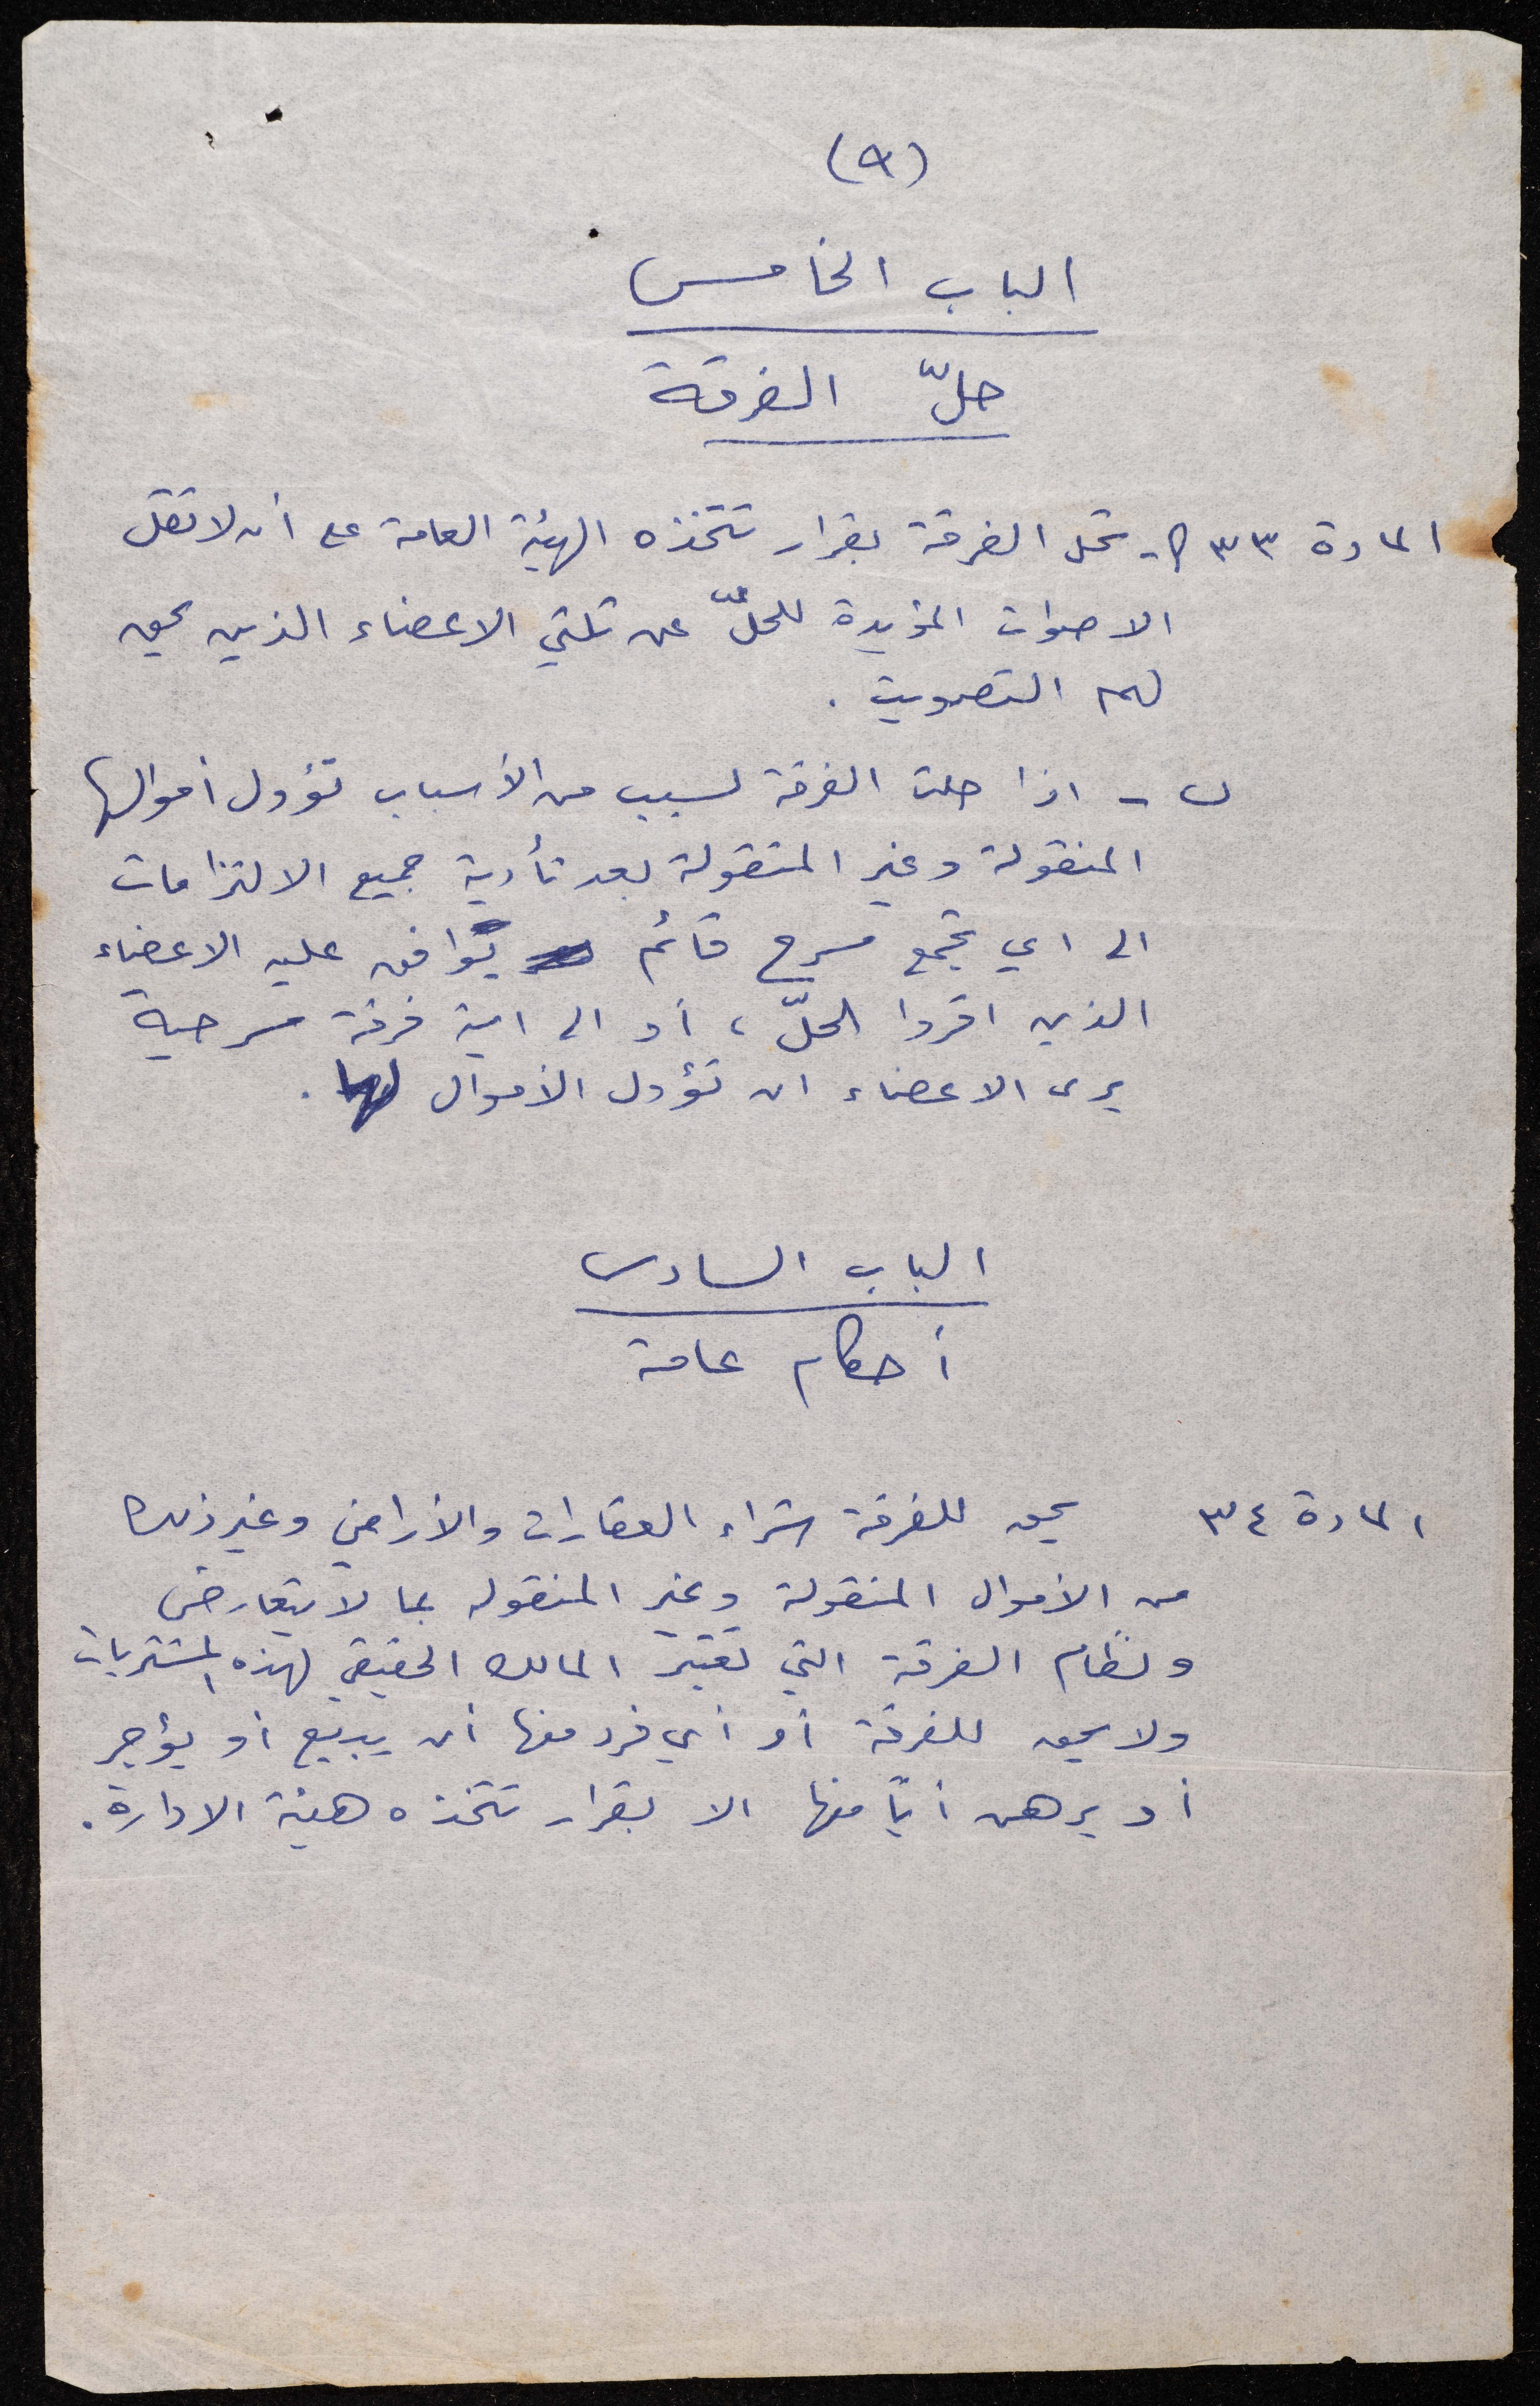 (٩)
الباب الخامس
حلّ الفرقة
المادة ٣٣ أ- تحل الفرقة بقرار تتخذه الهيئة العامة على أن لا تقل
الاصوات المؤيدة للحلّ عن ثلثي الاعضاء الذين يحق
لهم التصويت .
ب - اذا حلت الفرقة لسبب من الأسباب تؤول أموالها
المنقولة وغير المنقولة بعد تأدية جميع الالتزامات
الى اي تجمع مسرح قائم يوافق عليه الاعضاء
الذين اقروا الحلّ ، أو الى اية فرقة مسرحية
يرى الاعضاء ان تؤول الأموال لها .
الباب السادس
أحكام عامة
المادة ٣٤ يحق للفرقة شراء العقارات والأراضي وغير ذلك
من الأموال المنقولة وغير المنقوله بما لا يتعارض
ونظام الفرقة التي تعتبر المالك الحقيقي لهذه المشتريات
ولا يحق للفرقة أو أي فرد منها أن يبيع أو يؤجر
أو يرهن أيّاً منها الا بقرار تتخذه هيئة الادارة .